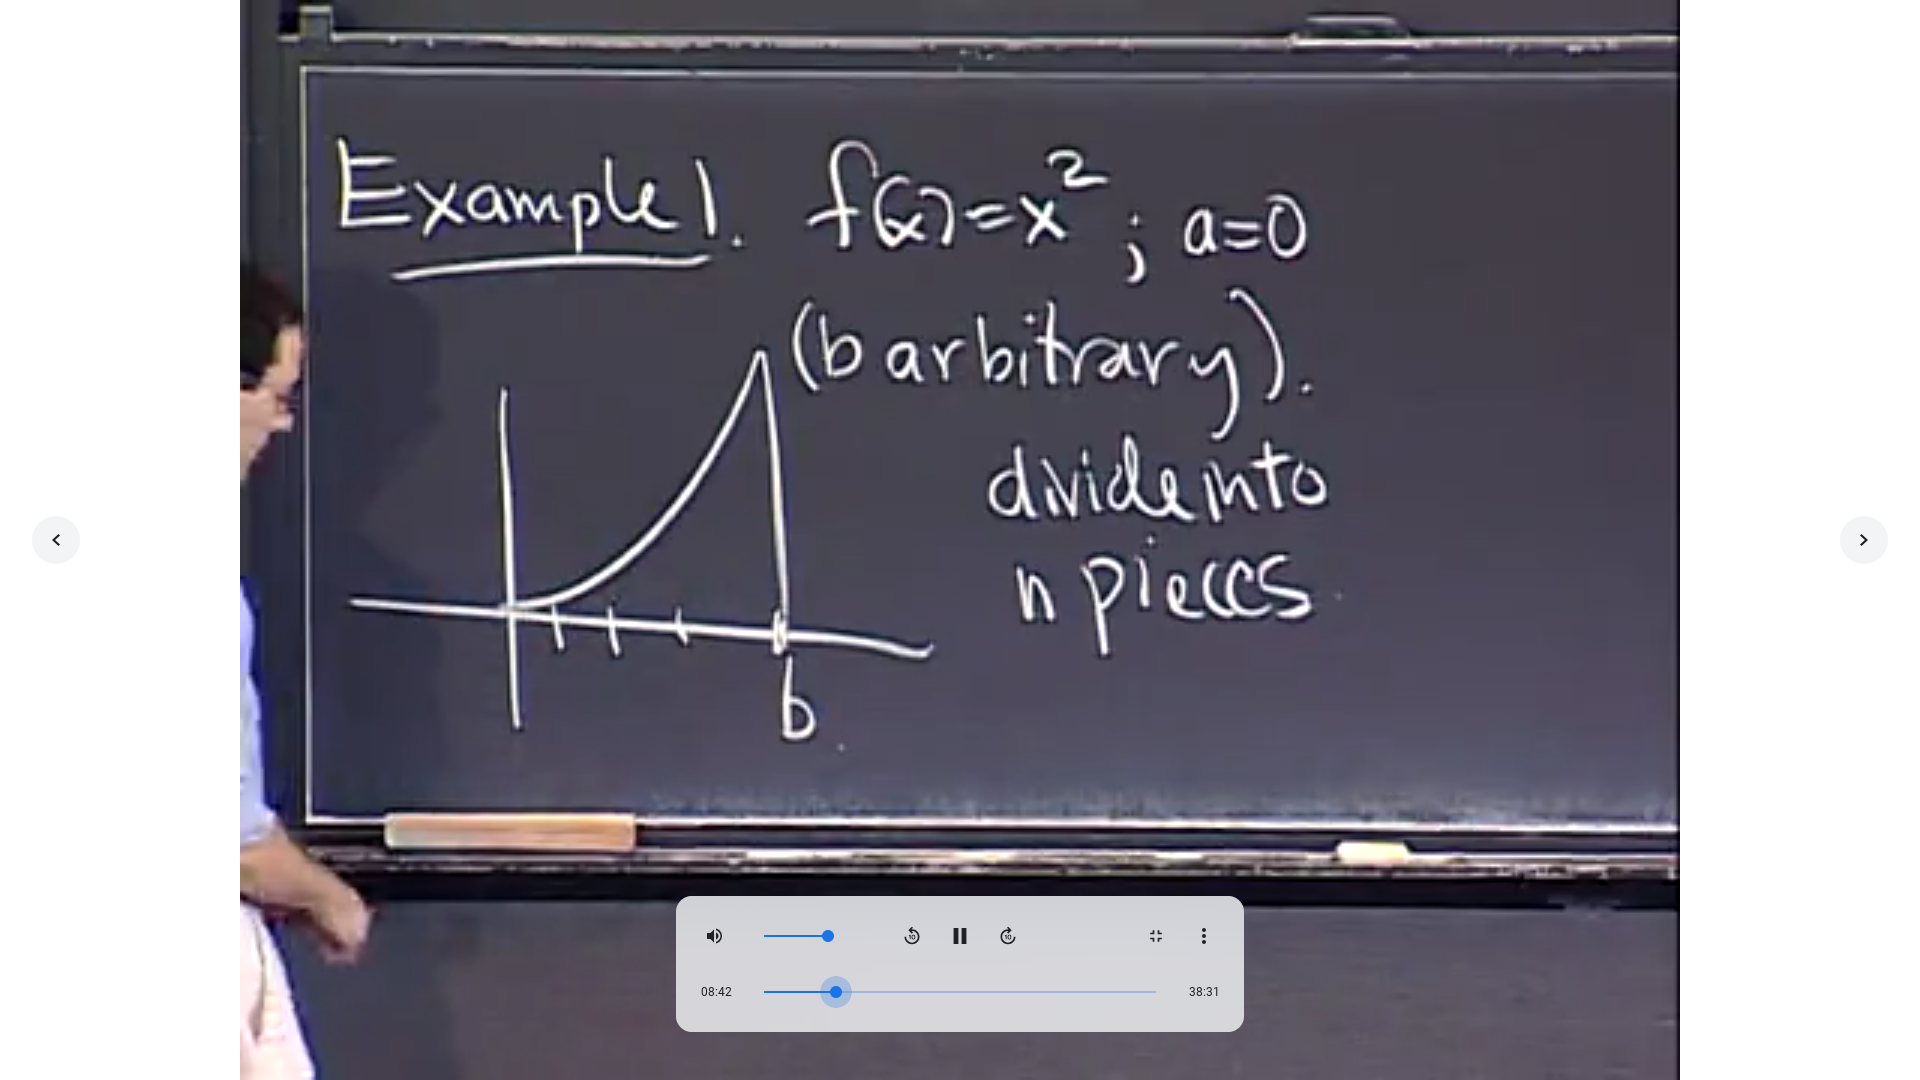 Example 1. f(x)=x² ; a=0
(b arbitrary).
divide into
n pieces
b
08:42
38:31